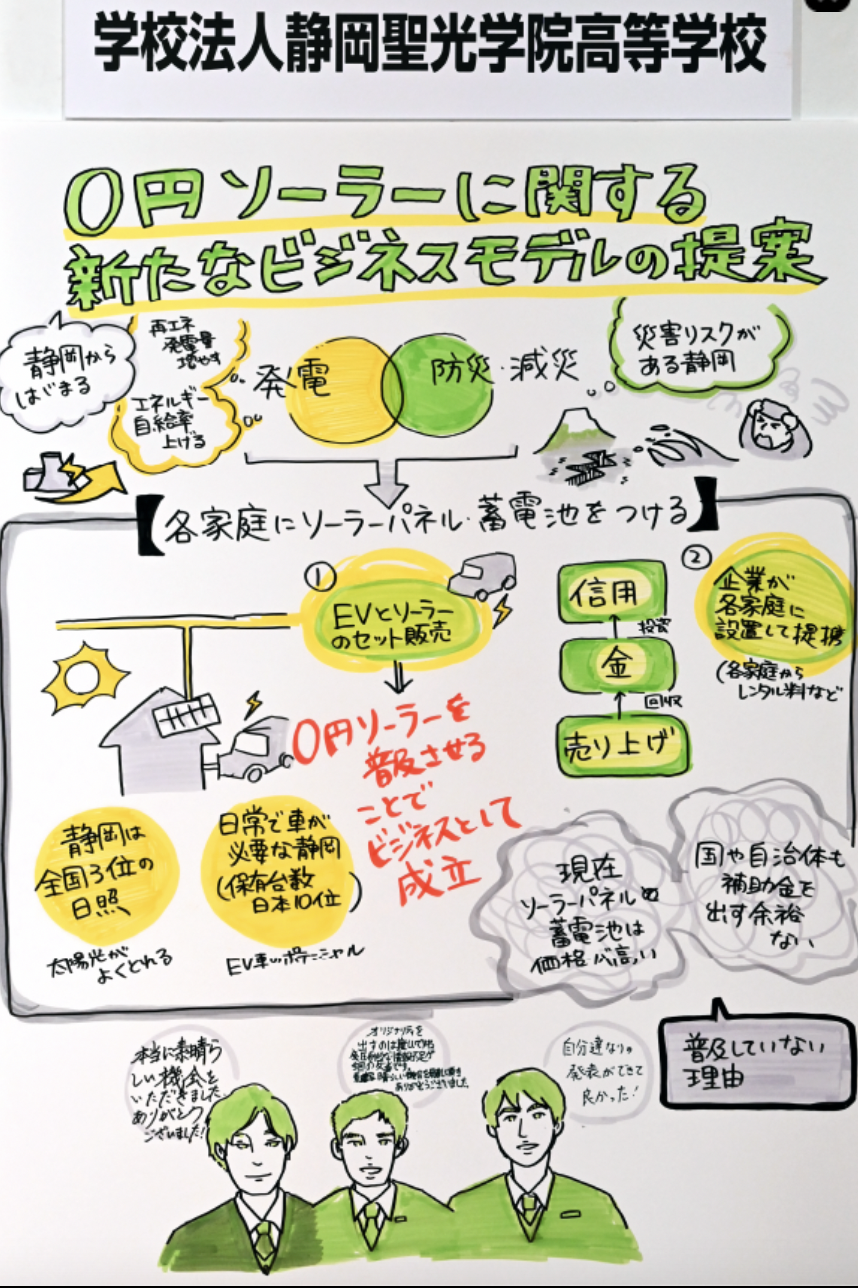 学校法人静岡聖光学院高等学校
0円ソーラーに関する
新たなビジネスモデルの提案
静岡から
はじまる
再エネ
発電量
増やす
エネルギー
自給率
上げる
発電
防災・減災
災害リスクが
ある静岡
【各家庭にソーラーパネル・蓄電池をつける】
①
EVとソーラー
のセット販売
0円ソーラーを
普及させる
ことで
ビジネスとして
成立
信用
投資
金
回収
売り上げ
②
企業が
各家庭に
設置して提携
(各家庭から
レンタル料など
静岡は
全国3位の
日照
太陽光が
よくとれる
日常で車が
必要な静岡
(保有台数
日本10位)
EV車のポテンシャル
現在
ソーラーパネルや
蓄電池は
価格が高い
国や自治体も
補助金を
出す余裕
ない
普及していない
理由
本当に素晴ら
しい機会を
いただきました
ありがとう
ございました!
オリジナリティを
出すのは難しく
ありがとうございました。
自分達なりの
発表ができて
良かった!